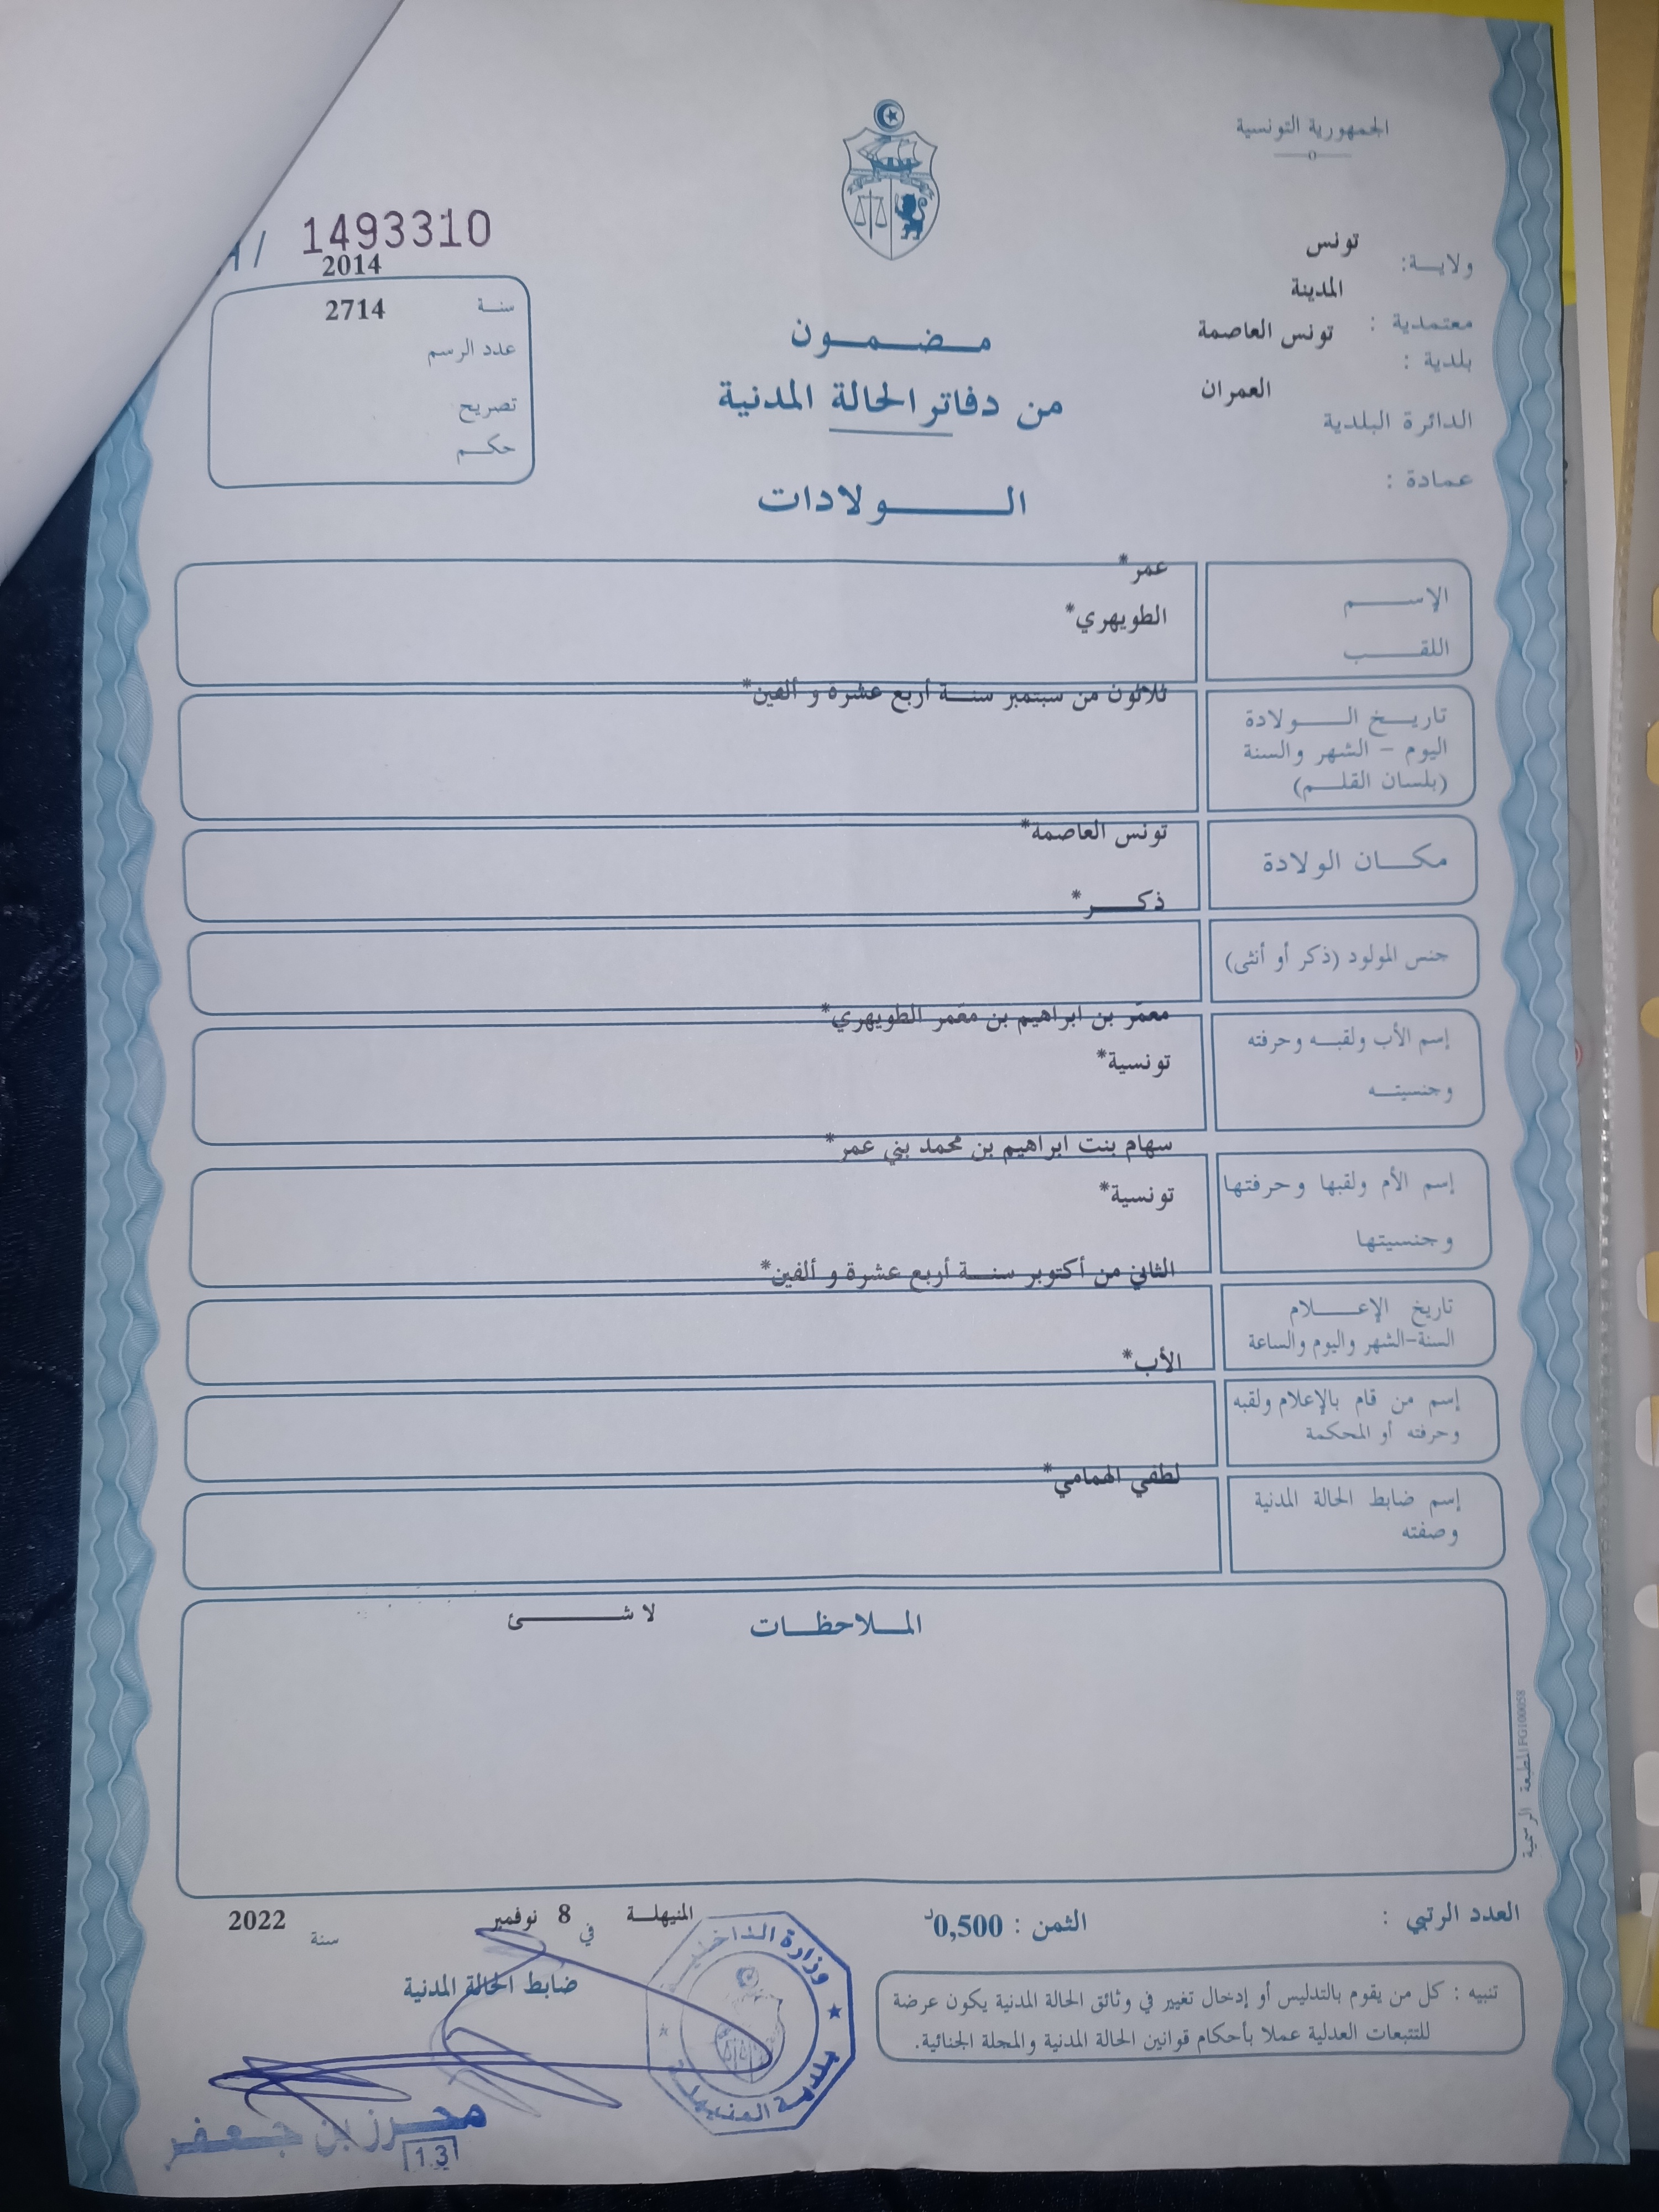 الجمهورية التونسية
ولايـــة: تونس
معتمدية : المدينة
بلدية : تونس العاصمة
الدائرة البلدية العمران
عمادة :
1493310
سنــة 2014
عدد الرسم 2714
تصريح
حكــم
مــضــمــون
من دفاتر الحالة المدنية
الــــولادات
الإســـــم عمر*
اللقـــــب الطويهري*
تاريــخ الــــولادة
اليوم - الشهر والسنة
(بلسان القلــم)
ثلاثون من سبتمبر سنــة أربع عشرة و ألفين*
مكــان الولادة تونس العاصمة*
جنس المولود (ذكر أو أنثى) ذكــــر*
إسم الأب ولقبــه وحرفته معمّر بن ابراهيم بن معّمر الطويهري*
وجنسيتــه تونسية*
إسم الأم ولقبها وحرفتها سهام بنت ابراهيم بن محمد بني عمر*
وجنسيتها تونسية*
تاريخ الإعــــلام
السنة-الشهر واليوم والساعة
الثاني من أكتوبر سنــة أربع عشرة و ألفين*
إسم من قام بالإعلام ولقبه
وحرفته أو المحكمة
الأب*
إسم ضابط الحالة المدنية
وصفته
لطفي الهمامي*
المــلاحظــات
لا شـــــئ
المطبعة الرسمية FG100058
العدد الرتبي :
الثمن : 0,500د
المنيهلــة في 8 نوفمبر سنة 2022
ضابط الحالة المدنية
وزارة الداخلية
بلدية المنيهلة
محــرز بن جــعــفــر
13
تنبيه : كل من يقوم بالتدليس أو إدخال تغيير في وثائق الحالة المدنية يكون عرضة
للتتبعات العدلية عملا بأحكام قوانين الحالة المدنية والمجلة الجنائية.